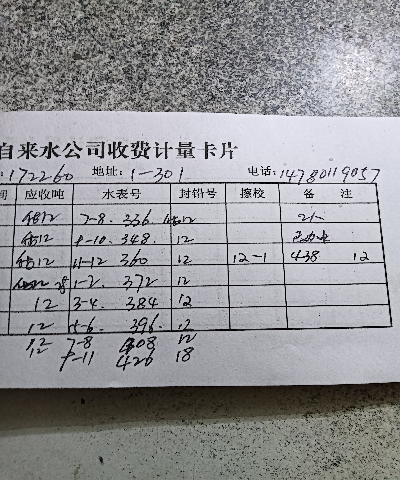 自来水公司收费计量卡片
:172260 地址: 1-301 电话: 14780119057
间 应收吨 水表号 封铅号 擦校 备 注
估12 7-8. 336 估12 2人
估12 9-10. 348. 12
估12 11-12 360 12 12-1 438 12
1-2. 372 12
12 3-4. 384 12
12 5-6. 396. 12
12 7-8 408 12
12 9-11 420 18